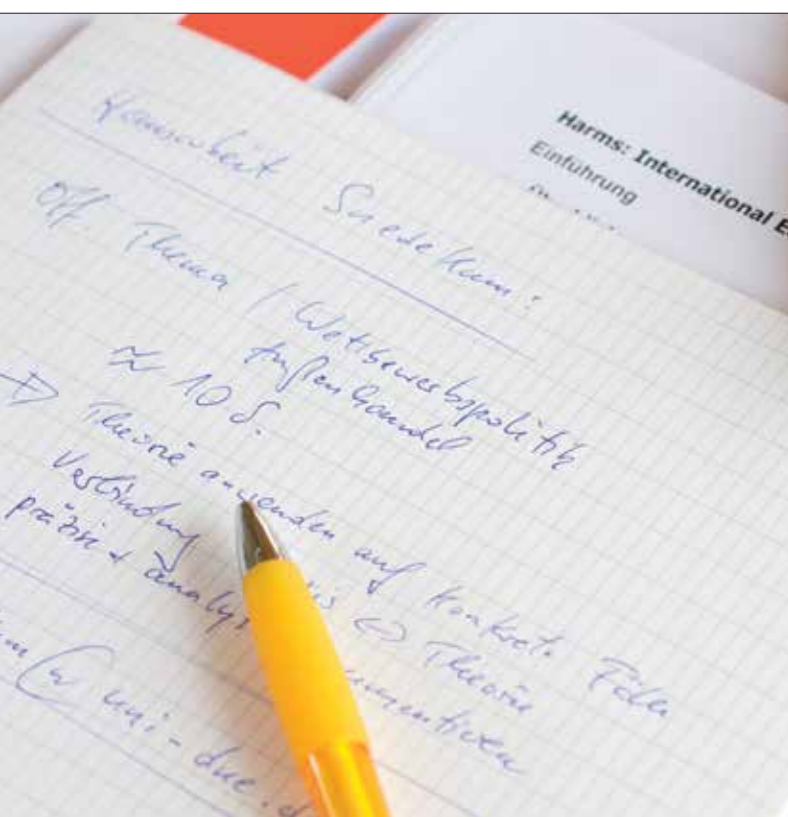 Harms: International E
Einführung
Hausarbeit Suedekum:
Off. Thema / Wettbewerbspolitik
Außenhandel
≈ 10 S.
→ Theorie anwenden auf konkret. Fäll
Verbindung is ↔ Theorie
präzise + analy umentieren
m @ uni-due.d